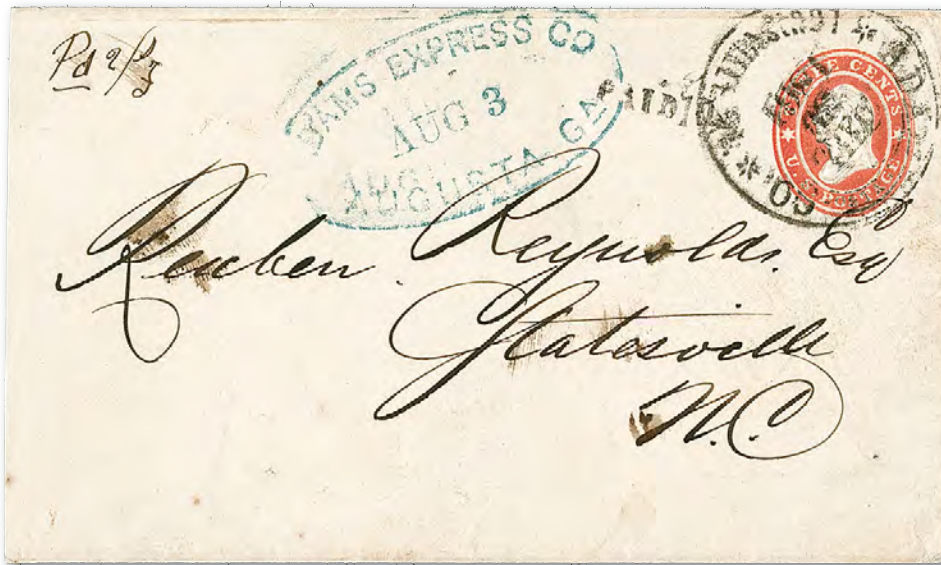 ADAMS EXPRESS CO
AUG 3
AUGUSTA, GA.
PAID
THREE CENTS
U.S. POSTAGE
Reuben Reynolds. Esq
Statesville
N.C.